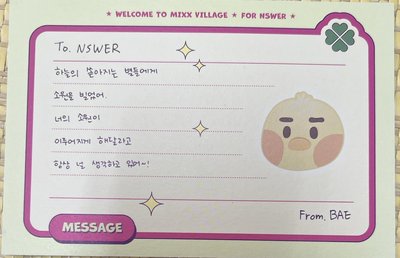 ★ WELCOME TO MIXX VILLAGE ★ FOR NSWER ★
To. NSWER
하늘의 쏟아지는 별들에게
소원을 빌었어.
너의 소원이
이루어지게 해달라고
항상 널 생각하고 있어~!
From. BAE
MESSAGE